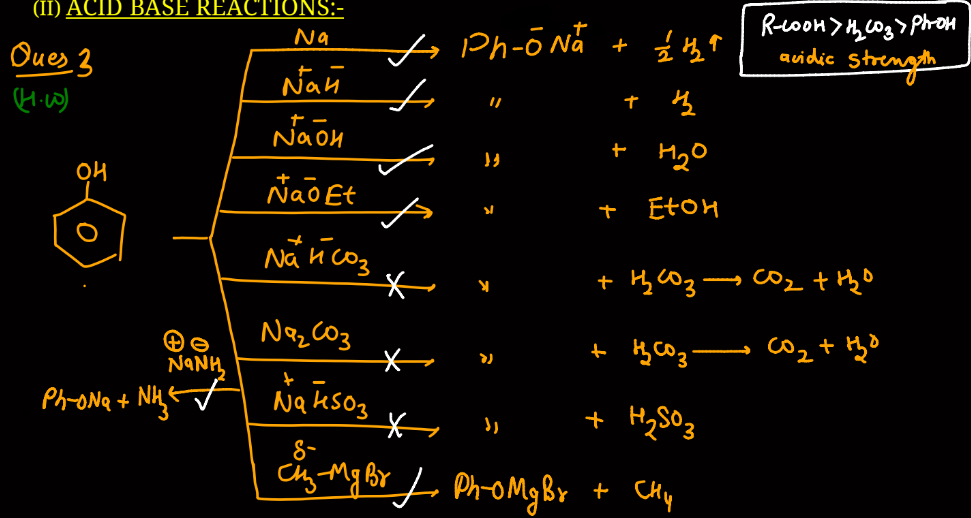 (II) ACID BASE REACTIONS:-
R-COOH > H2CO3 > Ph-OH
acidic strength
Ques 3
(H.W)
OH
Na
Ph-O⁻ Na⁺ + 1/2 H2↑
Na⁺H⁻
" + H2
Na⁺ ⁻OH
" + H2O
Na⁺ ⁻OEt
" + EtOH
Na⁺ H⁻CO3
" + H2CO3 → CO2 + H2O
Na2CO3
" + H2CO3 → CO2 + H2O
⊕ ⊖
NaNH2
Ph-ONa + NH3
Na⁺ H⁻SO3
" + H2SO3
δ-
CH3-MgBr
Ph-OMgBr + CH4